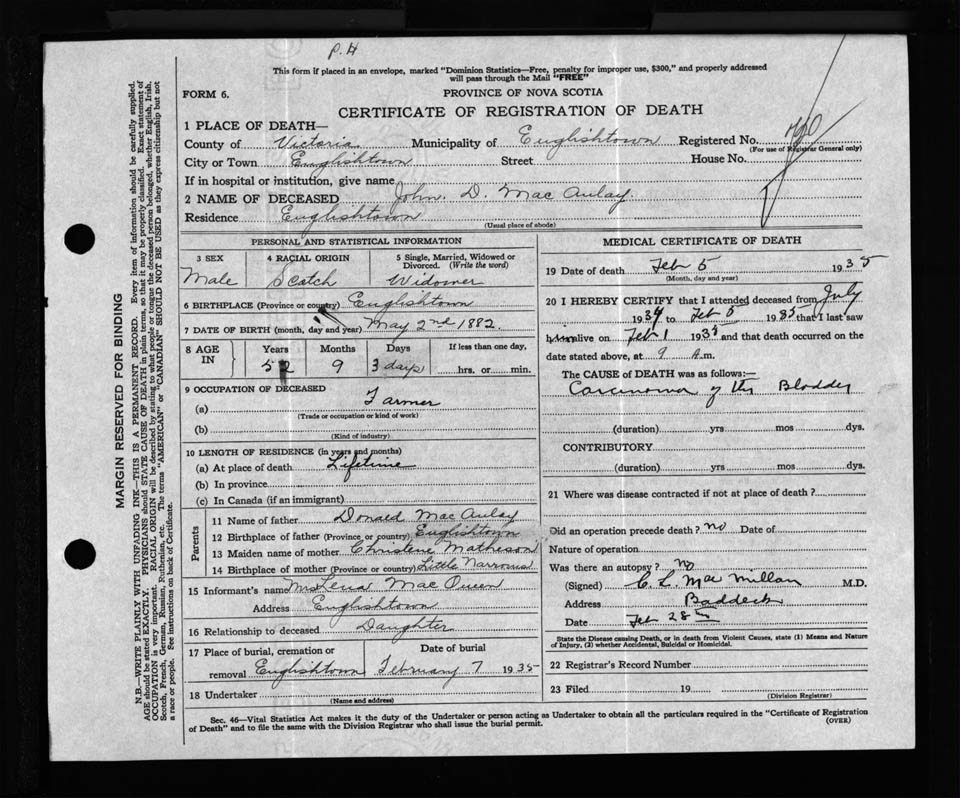 P.H
This form if placed in an envelope, marked "Dominion Statistics—Free, penalty for improper use, $300," and properly addressed
will pass through the Mail "FREE"
FORM 6.
PROVINCE OF NOVA SCOTIA
CERTIFICATE OF REGISTRATION OF DEATH
1 PLACE OF DEATH—
County of Victoria Municipality of Englishtown Registered No.
(For use of Registrar General only)
City or Town Englishtown Street House No.
If in hospital or institution, give name
2 NAME OF DECEASED John. D. MacAulay.
Residence Englishtown
(Usual place of abode)
PERSONAL AND STATISTICAL INFORMATION
3 SEX 4 RACIAL ORIGIN 5 Single, Married, Widowed or
Divorced. (Write the word)
Male Scotch Widower
6 BIRTHPLACE (Province or country) Englishtown
7 DATE OF BIRTH (month, day and year) May 2nd 1882.
8 AGE IN Years Months Days If less than one day,
52 9 3 days hrs. or min.
9 OCCUPATION OF DECEASED
(a) Farmer
(Trade or occupation or kind of work)
(b)
(Kind of industry)
10 LENGTH OF RESIDENCE (in years and months)
(a) At place of death Lifetime
(b) In province
(c) In Canada (if an immigrant)
Parents
11 Name of father Donald MacAulay
12 Birthplace of father (Province or country) Englishtown
13 Maiden name of mother Christene Matheson
14 Birthplace of mother (Province or country) Little Narrows
15 Informant's name Mrs Lena MacQueen
Address Englishtown
16 Relationship to deceased Daughter
17 Place of burial, cremation or Date of burial
removal Englishtown February 7 1935
18 Undertaker
(Name and address)
MEDICAL CERTIFICATE OF DEATH
19 Date of death Feb 5 1935
(Month, day and year)
20 I HEREBY CERTIFY that I attended deceased from July
1934 to Feb 5 1935 that I last saw
him alive on Feb 1 1935 and that death occurred on the
date stated above, at 9 A.m.
The CAUSE OF DEATH was as follows:—
Carcinoma of the Bladder
(duration) yrs mos dys.
CONTRIBUTORY
(duration) yrs mos dys.
21 Where was disease contracted if not at place of death?
Did an operation precede death? no Date of
Nature of operation
Was there an autopsy? no
(Signed) C. L. MacMillan M.D.
Address Baddeck
Date Feb 28
State the Disease causing Death, or in death from Violent Causes, state (1) Means and Nature
of Injury, (2) whether Accidental, Suicidal or Homicidal.
22 Registrar's Record Number
23 Filed 19
(Division Registrar)
Sec. 46—Vital Statistics Act makes it the duty of the Undertaker or person acting as Undertaker to obtain all the particulars required in the "Certificate of Registration
of Death" and to file the same with the Division Registrar who shall issue the burial permit.
(OVER)
MARGIN RESERVED FOR BINDING
N.B.—WRITE PLAINLY WITH UNFADING INK—THIS IS A PERMANENT RECORD. Every item of information should be carefully supplied.
AGE should be stated EXACTLY. PHYSICIANS should STATE CAUSE OF DEATH in plain terms, so that it may be properly classified. Exact statement of
OCCUPATION is very important. RACIAL ORIGIN will be described by stating to what people or tongue the deceased person belonged, whether English, Irish,
Scotch, French, German, Russian, Ruthenian, etc. The terms "AMERICAN" or "CANADIAN" SHOULD NOT BE USED as they express citizenship but not
a race or people. See instructions on back of Certificate.